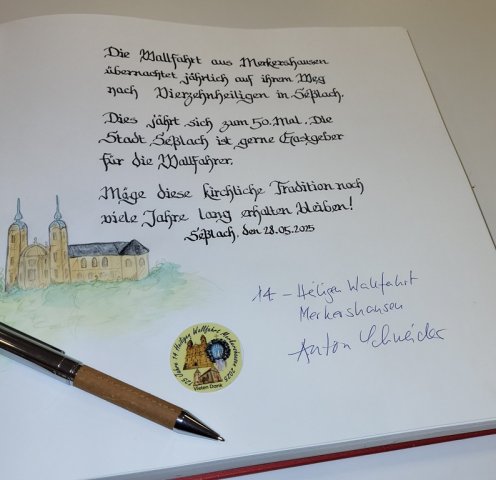 Die Wallfahrt aus Merkershausen
übernachtet jährlich auf ihrem Weg
nach Vierzehnheiligen in Seßlach.
Dies jährt sich zum 50. Mal. Die
Stadt Seßlach ist gerne Gastgeber
für die Wallfahrer.
Möge diese kirchliche Tradition noch
viele Jahre lang erhalten bleiben!
Seßlach, den 28.05.2025
14 - Heiligen Wallfahrt
Merkershausen
Anton Schneider
125 Jahre 14 Heiligen Wallfahrt Merkershausen 2025
Vielen Dank